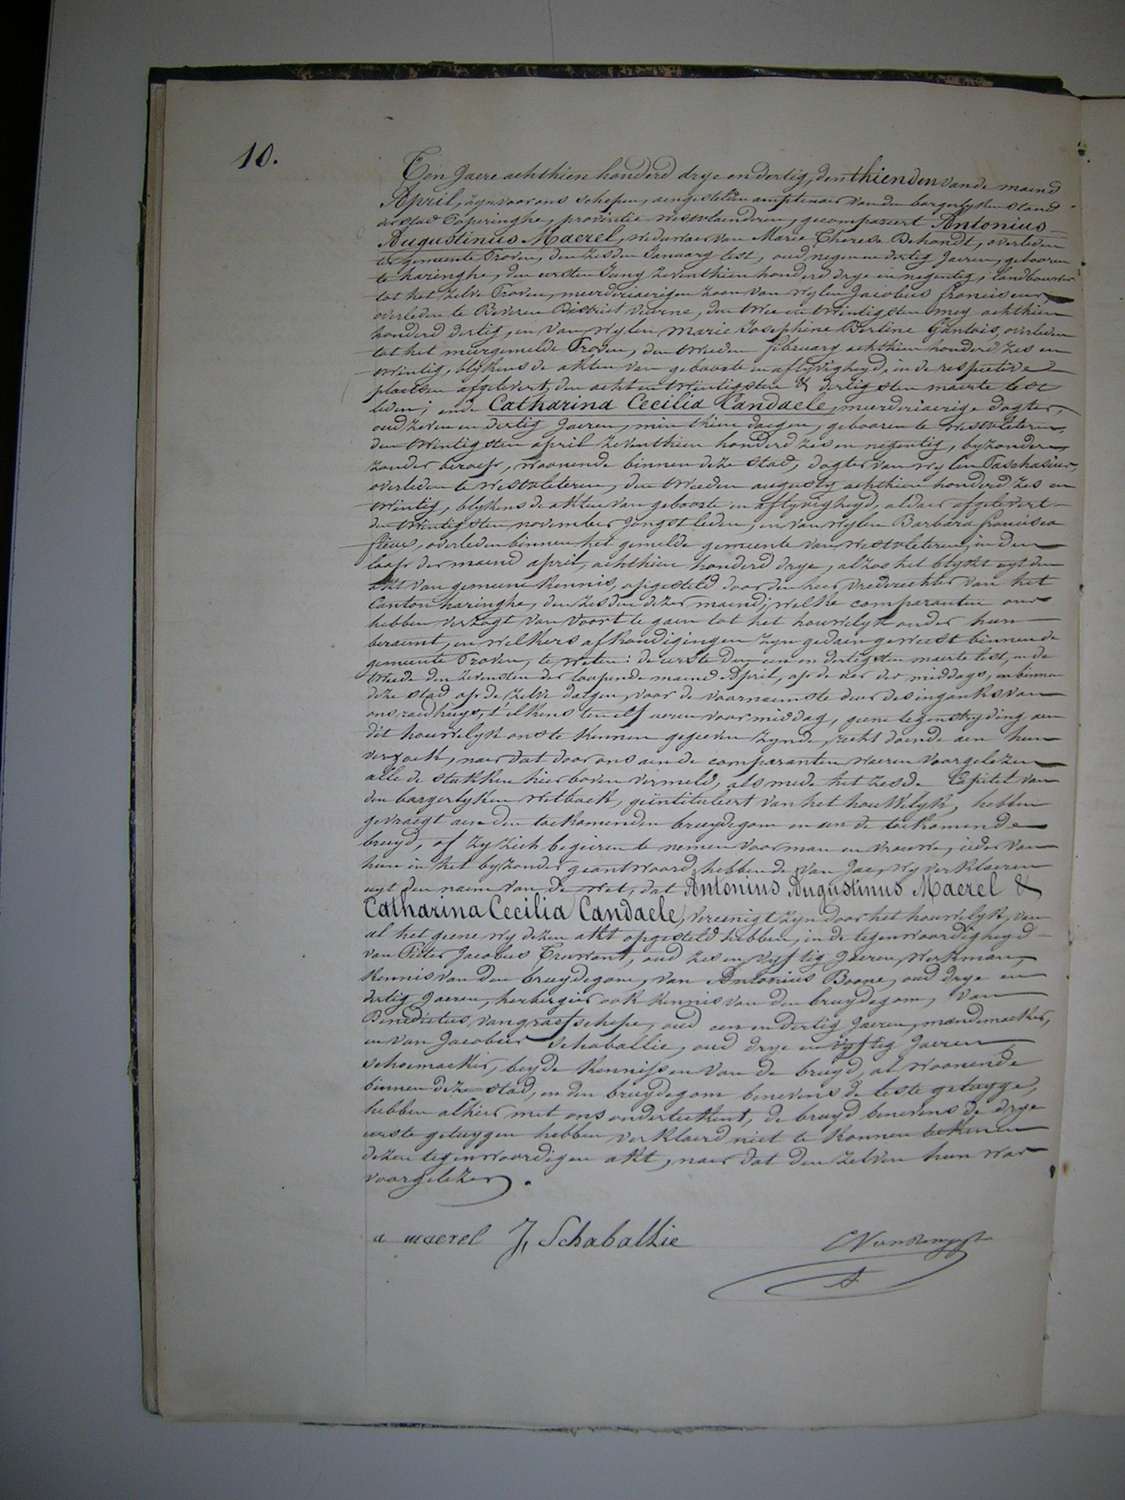 10.
Ten Jaere achthien honderd drye en dertig, den thienden van de maend
April, zyn voor ons schepen, aengestelden amptenaer van den borgerlyken stand
der stad Poperinghe, provintie westvlaenderen, gecompareert Antonius
Augustinus Maerel, weduwaer van Marie Theresa Dehondt, overleden
te gemeente Proven, den zesden January lest, oud negen en dertig Jaeren, gebooren
te haringhe, den eersten Juny zeventhien honderd drye en negentig, landbouwer
tot het zelve Proven, meerderjaerigen zoon van wylen Jacobus franciscus
overleden te Beveren District veurne, den twee en twintigsten mey achthien
honderd dertig, en van wylen Marie Josephine Bertine Gantois, overleden
tot het meergemelde Proven, den tweeden february achthien honderd zes en
twintig, blykens de akten van geboorte en aflyvigheyd, in de respective
plaetsen afgelevert, den acht en twintigsten & dertigsten maerte lest
leden; ende Catharina Cecilia Candaele, meerderjaerige dogter,
oud zeven en dertig Jaeren, min thien daegen, gebooren te westvleteren,
den twintigsten april zeventhien honderd zes en negentig, byzondere
zonder beroep, woonende binnen deze stad, dogter van wylen Paschasius,
overleden te westvleteren, den tweeden augusty achthien honderd zes en
twintig, blykens de akten van geboorte en aflyvigheyd, aldaer afgelevert
den twintigsten november jongst leden, en van wylen Barbara francisca
fleus, overleden binnen het gemelde gemeente van westvleteren, in den
loop der maend april, achthien honderd drye, alzoo het blykt uyt den
akt van gemeene kennis, opgesteld door den heer vrederechter van het
Canton haringhe, den zesden dezer maend; welke comparanten ons
hebben verzogt van voort te gaen tot het houwelyk onder hun
beraemt, en welkers afkondigingen zyn gedaen geweest binnen de
gemeente Proven, te weten: de eerste den een en dertigsten maerte lest, en de
tweede den zevensten der loopende maend April, op de uer der middags, en binnen
deze stad op de zelve dagen, voor de voornaemste deur des ingangs van
ons raedhuys, t'elkens ten elf ueren voormiddag, geene tegenstryding aen
dit houwelyk ons te kennen gegeven zynde, recht doende aen hun
verzoek, naer dat door ons aen de comparanten waeren voorgelezen
alle de stukken hier boven vermeld, als mede het zesde Capitel van
den borgerlyken wetboek, geintituleert van het houwelyk, hebben
gevraegt aen den toekomenden bruydegom en aen de toekomende
bruyd, of zy zich begeiren te nemen voor man en vrouwe, ieder van
hun in het byzonder geantwoord hebbende van Jae, wy verklaeren
uyt den naem van de wet, dat Antonius Augustinus Maerel &
Catharina Cecilia Candaele, vereenigt zyn door het houwelyk, van
al het geene wy dezen akt opgesteld hebben, in de tegenwoordigheyd
van Pieter Jacobus Truwant, oud zes en vyftig Jaeren, werkman,
kennis van den bruydegom, van Antonius Boone, oud drye en
dertig Jaeren, herbergier ook kennis van den bruydegom, van
Benedictus vangraefschepe, oud een en dertig Jaeren, mandemaeker,
en van Jacobus Schaballie, oud drye en vyftig Jaeren
schoemaeker, beyde kennissen van de bruyd, al woonende
binnen deze stad, en den bruydegom benevens de leste getuyge,
hebben alhier met ons onderteekent, de bruyd benevens de drye
eerste getuygen hebben verklaerd niet te konnen teekenen
dezen tegenwoordigen akt, naer dat den zelven hun was
voorgelezen.
a maerel J, Schaballie